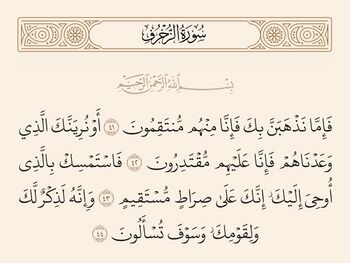 سُورَةُ الزُّخْرُفِ
بِسْمِ اللَّهِ الرَّحْمَٰنِ الرَّحِيمِ
فَإِمَّا نَذْهَبَنَّ بِكَ فَإِنَّا مِنْهُم مُّنتَقِمُونَ ٤١ أَوْ نُرِيَنَّكَ الَّذِي
وَعَدْنَاهُمْ فَإِنَّا عَلَيْهِم مُّقْتَدِرُونَ ٤٢ فَاسْتَمْسِكْ بِالَّذِي
أُوحِيَ إِلَيْكَ ۖ إِنَّكَ عَلَىٰ صِرَاطٍ مُّسْتَقِيمٍ ٤٣ وَإِنَّهُ لَذِكْرٌ لَّكَ
وَلِقَوْمِكَ ۖ وَسَوْفَ تُسْأَلُونَ ٤٤